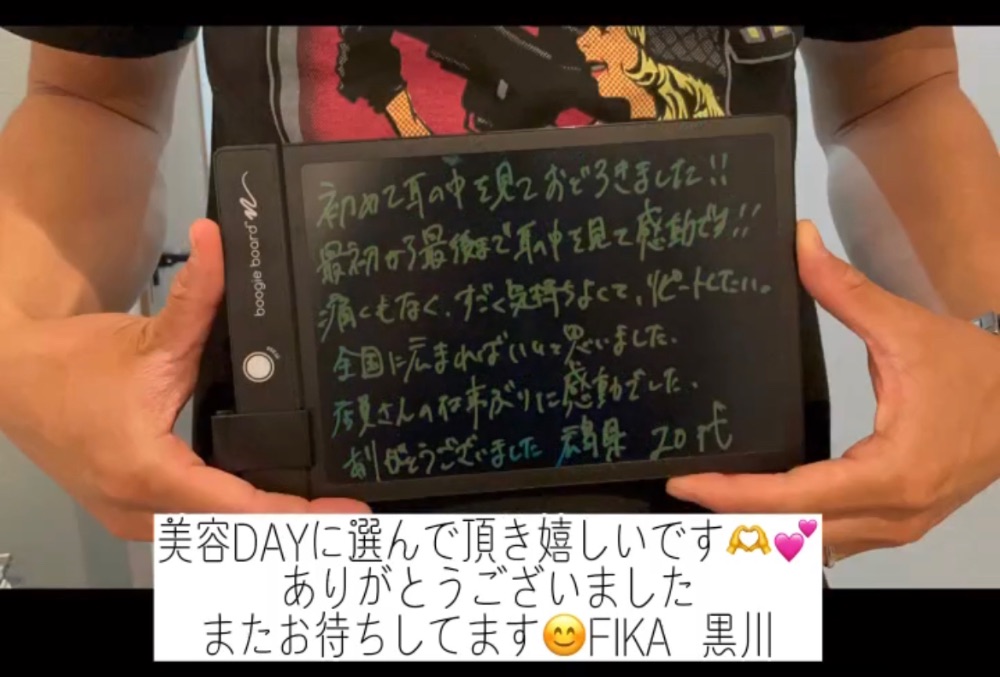 boogie board
初めて耳の中を見ておどろきました!!
最初から最後まで耳の中を見て感動です!!
痛くもなく、すごく気持ちよくて、リピートしたい。
全国に広まればいいと思いました。
店員さんの仕事ぶりに感動でした。
ありがとうございました 広島県 20代
美容DAYに選んで頂き嬉しいです🫶💕
ありがとうございました
またお待ちしてます😊FIKA 黒川